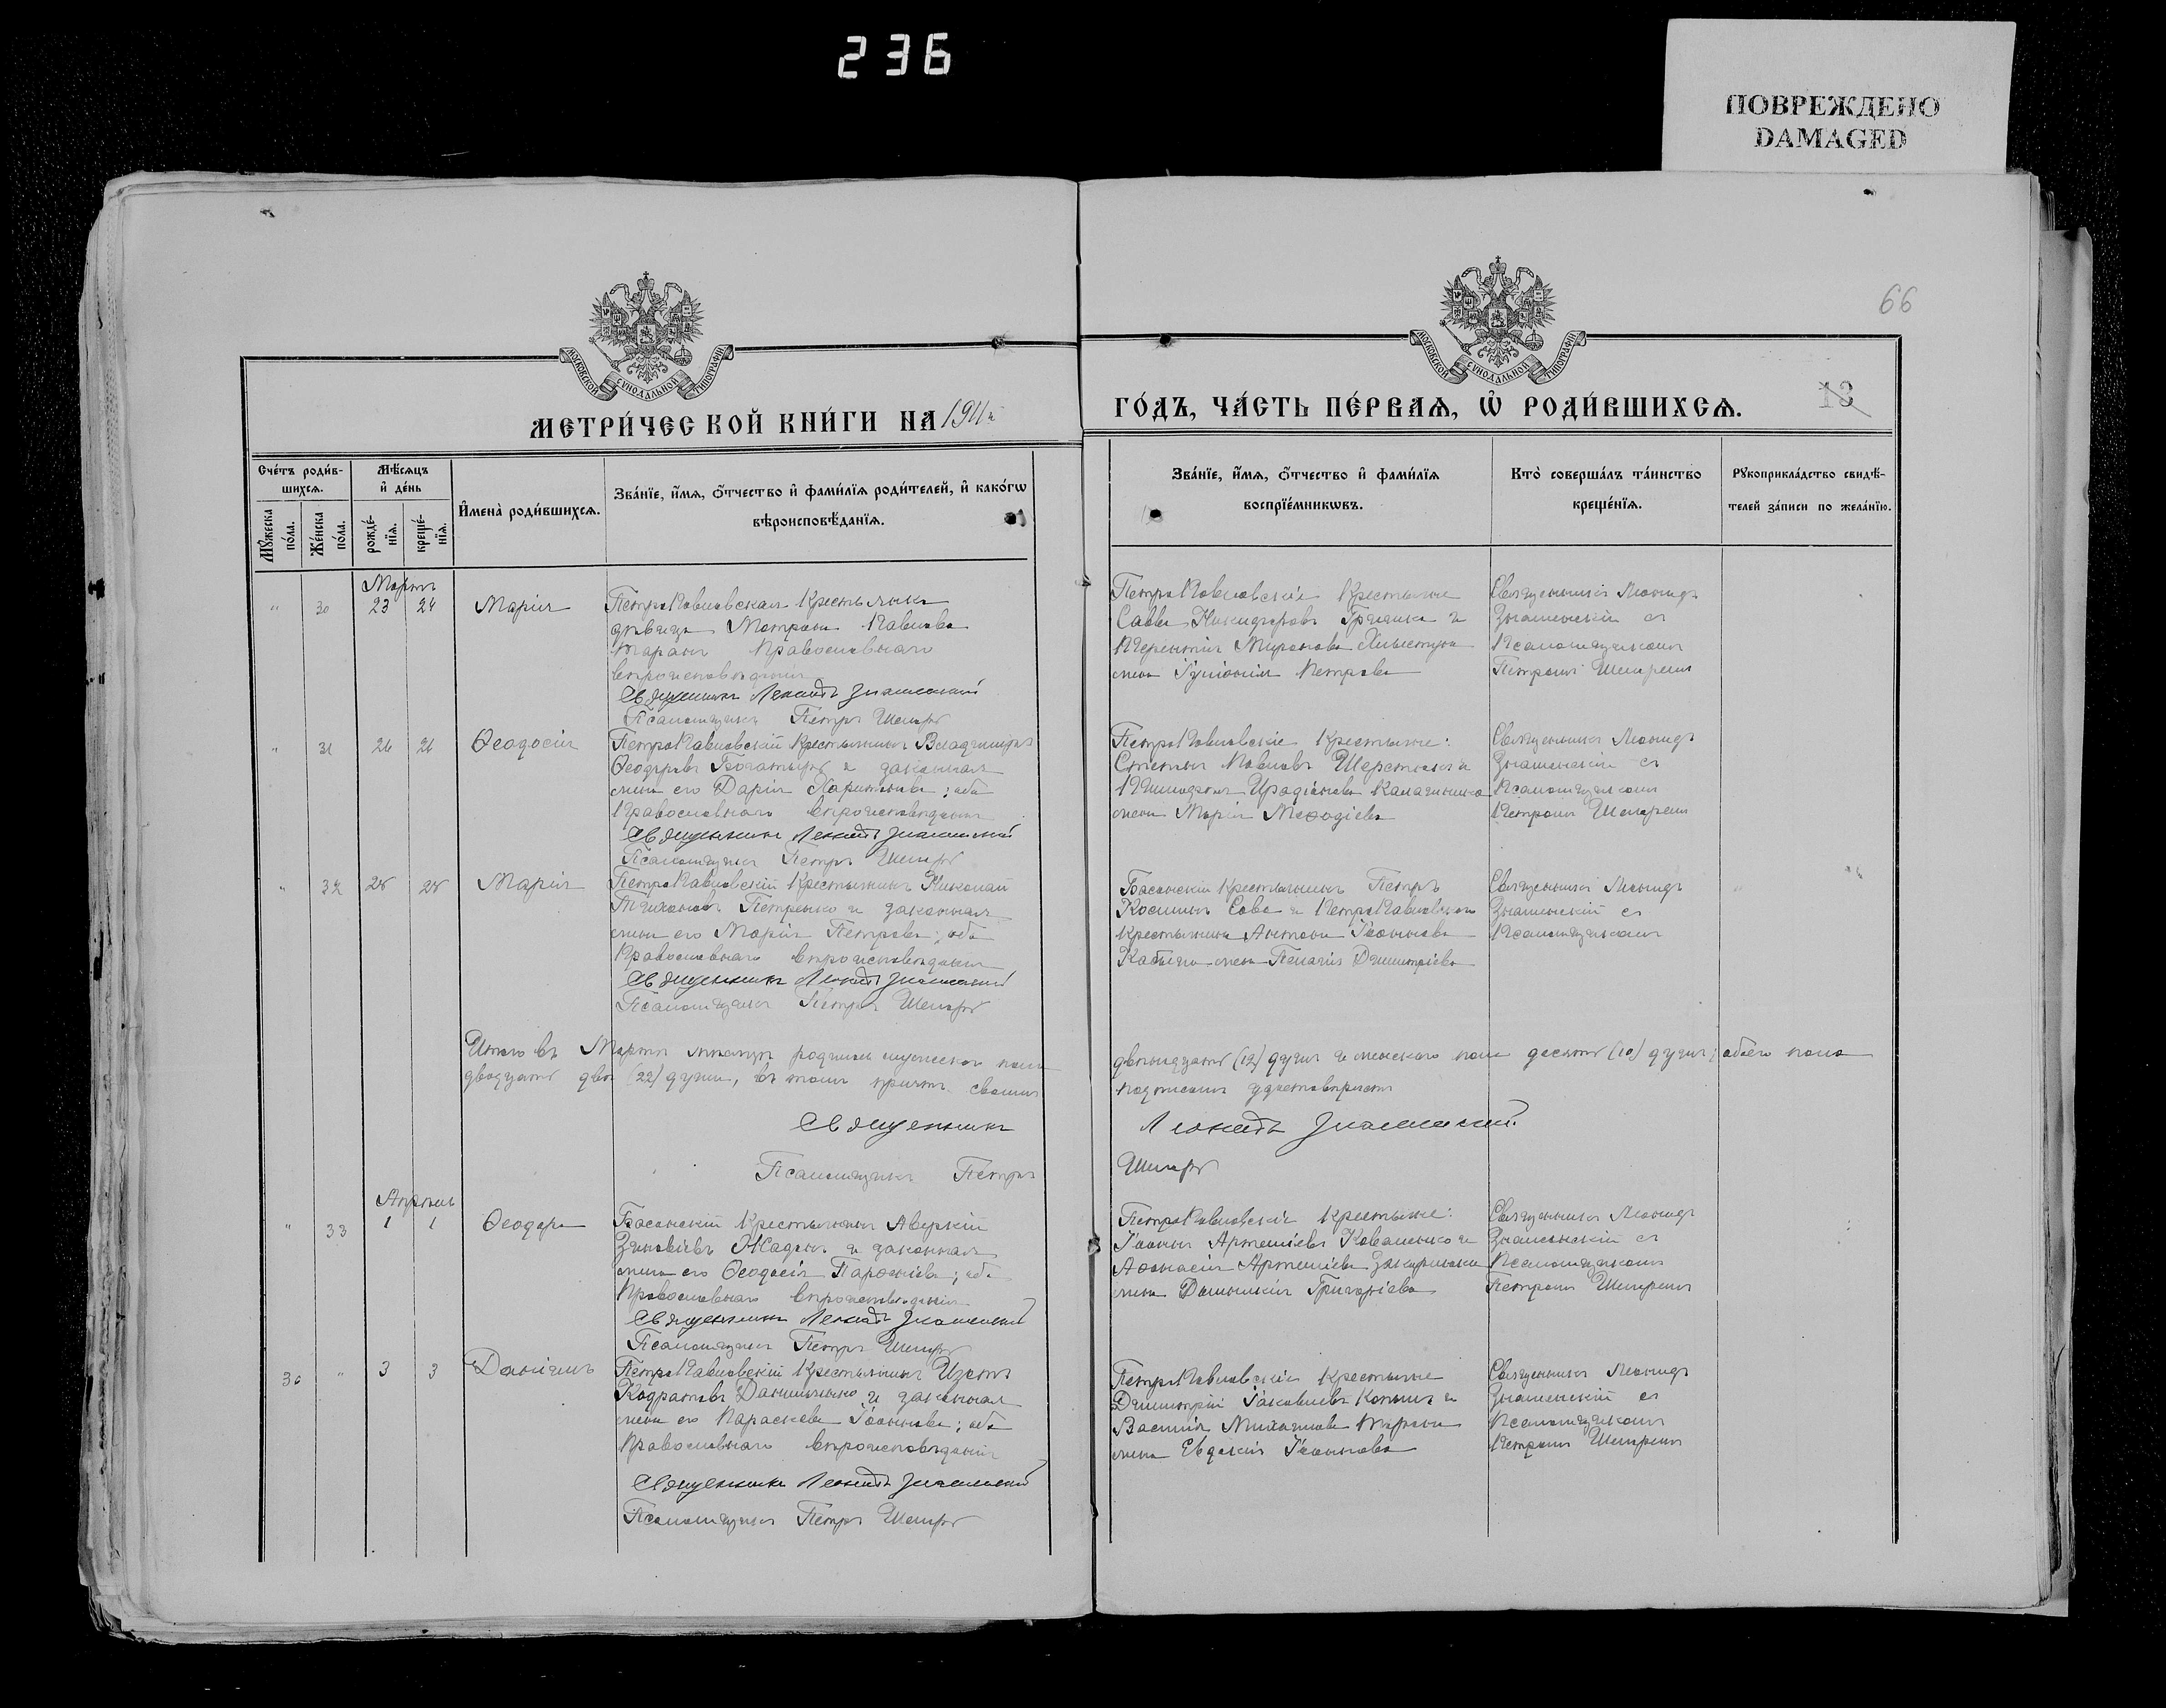 236
ПОВРЕЖДЕНО
DAMAGED
66
МОСКОВСКОЙ СѴНОДАЛЬНОЙ ТИПОГРАФІИ
МОСКОВСКОЙ СѴНОДАЛЬНОЙ ТИПОГРАФІИ
МЕТРИ́ЧЕСКОЙ КНИ́ГИ НА 1911
ГО́ДЪ, ЧА́СТЬ ПЕ́РВАѦ, Ѡ҆ РОДИ́ВШИХСѦ.
13
Сче́тъ роди́в-
шихсѧ.
Мꙋ́жеска по́ла.
Же́нска по́ла.
Мѣ́сѧцъ
и҆ де́нь
рожде́-
нїѧ.
креще́-
нїѧ.
И҆мена̀ роди́вшихсѧ.
Зва́нїе, и҆́мѧ, ѻ҆́тчество и҆ фами́лїѧ роди́телей, и҆ како́гѡ
вѣроисповѣ́данїѧ.
Зва́нїе, и҆́мѧ, ѻ҆́тчество и҆ фами́лїѧ
воспрїе́мникѡвъ.
Кто̀ соверша́лъ та́инство
креще́нїѧ.
Рꙋкоприкла́дство свидѣ́-
телей за́писи по жела́нїю.
Мартъ
" 30 23 24 Марія
ПетроПавловская Крестьянка
дѣвица Матрона Павлова
Таранъ Православнаго
вѣроисповѣданія
Священникъ Леонидъ Знаменскій
Псаломщикъ Петръ
ПетроПавловскіе Крестьяне
Савва Никифоровъ и
Терентія Миронова
жена Іуліанія Петрова
Священникъ Леонидъ
Знаменскій съ
Псаломщикомъ
Петромъ
" 31 26 26 Ѳеодосія
ПетроПавловскій Крестьянинъ Владиміръ
Ѳеодоровъ Богатырь и законная
жена его Дарія Харитонова; оба
Православнаго вѣроисповѣданія
Священникъ Леонидъ Знаменскій
Псаломщикъ Петръ
ПетроПавловскіе Крестьяне:
Стефанъ Павловъ и
Иродіонова Калашника
жена Марія Меѳодіева
Священникъ Леонидъ
Знаменскій съ
Псаломщикомъ
Петромъ
" 32 28 28 Марія
ПетроПавловскій Крестьянинъ Николай
Тихоновъ Петренко и законная
жена его Марія Петрова; оба
Православнаго вѣроисповѣданія
Священникъ Леонидъ Знаменскій
Псаломщикъ Петръ
Басанскій Крестьянинъ Петръ
Косминъ Сова и ПетроПавловскаго
крестьянина Антона Іоаннова
жена Пелагія Димитріева
Священникъ Леонидъ
Знаменскій съ
Псаломщикомъ
Итого въ Мартѣ мѣсяцѣ родилось мужескаго пола
двѣнадцать (12) душъ и женскаго пола десять (10) душъ; обоего пола
двадцать двѣ (22) души, въ томъ причтъ своимъ
подписомъ удостовѣряетъ
Священникъ Леонидъ Знаменскій
Псаломщикъ Петръ
Апрѣль
" 33 1 1 Ѳеодора
Басанскій Крестьянинъ Аверкій
Зиновіевъ и законная
жена его Ѳеодосія Парѳеніева; оба
Православнаго вѣроисповѣданія
Священникъ Леонидъ Знаменскій
Псаломщикъ Петръ
ПетроПавловскіе Крестьяне:
Іоаннъ Артеміевъ Коваленко и
Аѳанасія Артеміева
жена Григоріева
Священникъ Леонидъ
Знаменскій съ
Псаломщикомъ
Петромъ
30 " 3 3 Даніилъ
ПетроПавловскій Крестьянинъ
Кодратовъ и законная
жена его Параскева Іоаннова; оба
Православнаго вѣроисповѣданія
Священникъ Леонидъ Знаменскій
Псаломщикъ Петръ
ПетроПавловскіе Крестьяне
Димитрій Іаковлевъ и
Василія Михаилова
жена Евдокія Іоаннова
Священникъ Леонидъ
Знаменскій съ
Псаломщикомъ
Петромъ